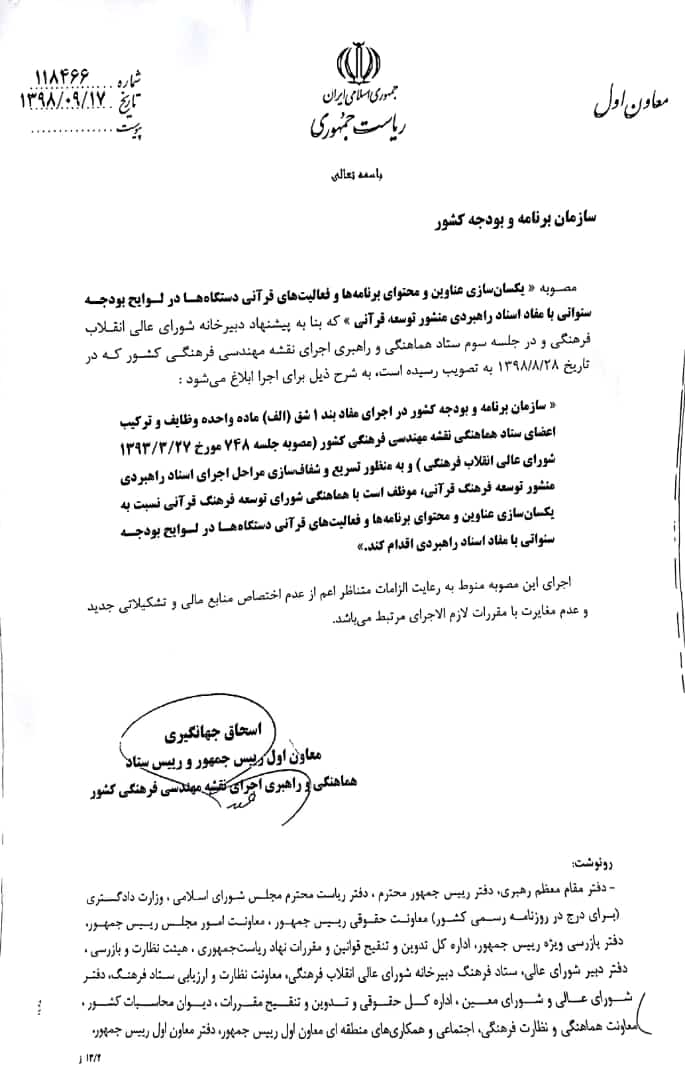 شماره ۱۱۸۴۶۶
تاریخ ۱۳۹۸/۰۹/۱۷
پیوست
جمهوری اسلامی ایران
ریاست جمهوری
معاون اول
باسمه تعالی
سازمان برنامه و بودجه کشور
مصوبه « یکسان‌سازی عناوین و محتوای برنامه‌ها و فعالیت‌های قرآنی دستگاه‌ها در لوایح بودجه
سنواتی با مفاد اسناد راهبردی منشور توسعه قرآنی » که بنا به پیشنهاد دبیرخانه شورای عالی انقلاب
فرهنگی و در جلسه سوم ستاد هماهنگی و راهبری اجرای نقشه مهندسی فرهنگی کشور که در
تاریخ ۱۳۹۸/۸/۲۸ به تصویب رسیده است، به شرح ذیل برای اجرا ابلاغ می‌شود :
« سازمان برنامه و بودجه کشور در اجرای مفاد بند ۱ شق (الف) ماده واحده وظایف و ترکیب
اعضای ستاد هماهنگی نقشه مهندسی فرهنگی کشور (مصوبه جلسه ۷۴۸ مورخ ۱۳۹۳/۳/۲۷
شورای عالی انقلاب فرهنگی ) و به منظور تسریع و شفاف‌سازی مراحل اجرای اسناد راهبردی
منشور توسعه فرهنگ قرآنی، موظف است با هماهنگی شورای توسعه فرهنگ قرآنی نسبت به
یکسان‌سازی عناوین و محتوای برنامه‌ها و فعالیت‌های قرآنی دستگاه‌ها در لوایح بودجه
سنواتی با مفاد اسناد راهبردی اقدام کند.»
اجرای این مصوبه منوط به رعایت الزامات متناظر اعم از عدم اختصاص منابع مالی و تشکیلاتی جدید
و عدم مغایرت با مقررات لازم الاجرای مرتبط می‌باشد.
اسحاق جهانگیری
معاون اول رییس جمهور و رییس ستاد
هماهنگی و راهبری اجرای نقشه مهندسی فرهنگی کشور
رونوشت:
- دفتر مقام معظم رهبری، دفتر رییس جمهور محترم ، دفتر ریاست محترم مجلس شورای اسلامی ، وزارت دادگستری
(برای درج در روزنامه رسمی کشور) معاونت حقوقی رییس جمهور ، معاونت امور مجلس رییس جمهور،
دفتر بازرسی ویژه رییس جمهور، اداره کل تدوین و تنقیح قوانین و مقررات نهاد ریاست‌جمهوری ، هیئت نظارت و بازرسی ،
دفتر دبیر شورای عالی، ستاد فرهنگ دبیرخانه شورای عالی انقلاب فرهنگی، معاونت نظارت و ارزیابی ستاد فرهنگ، دفتر
شورای عالی و شورای معین ، اداره کل حقوقی و تدوین و تنقیح مقررات ، دیوان محاسبات کشور ،
معاونت هماهنگی و نظارت فرهنگی، اجتماعی و همکاری‌های منطقه ای معاون اول رییس جمهور، دفتر معاون اول رییس جمهور.
۱۲/۲ ز